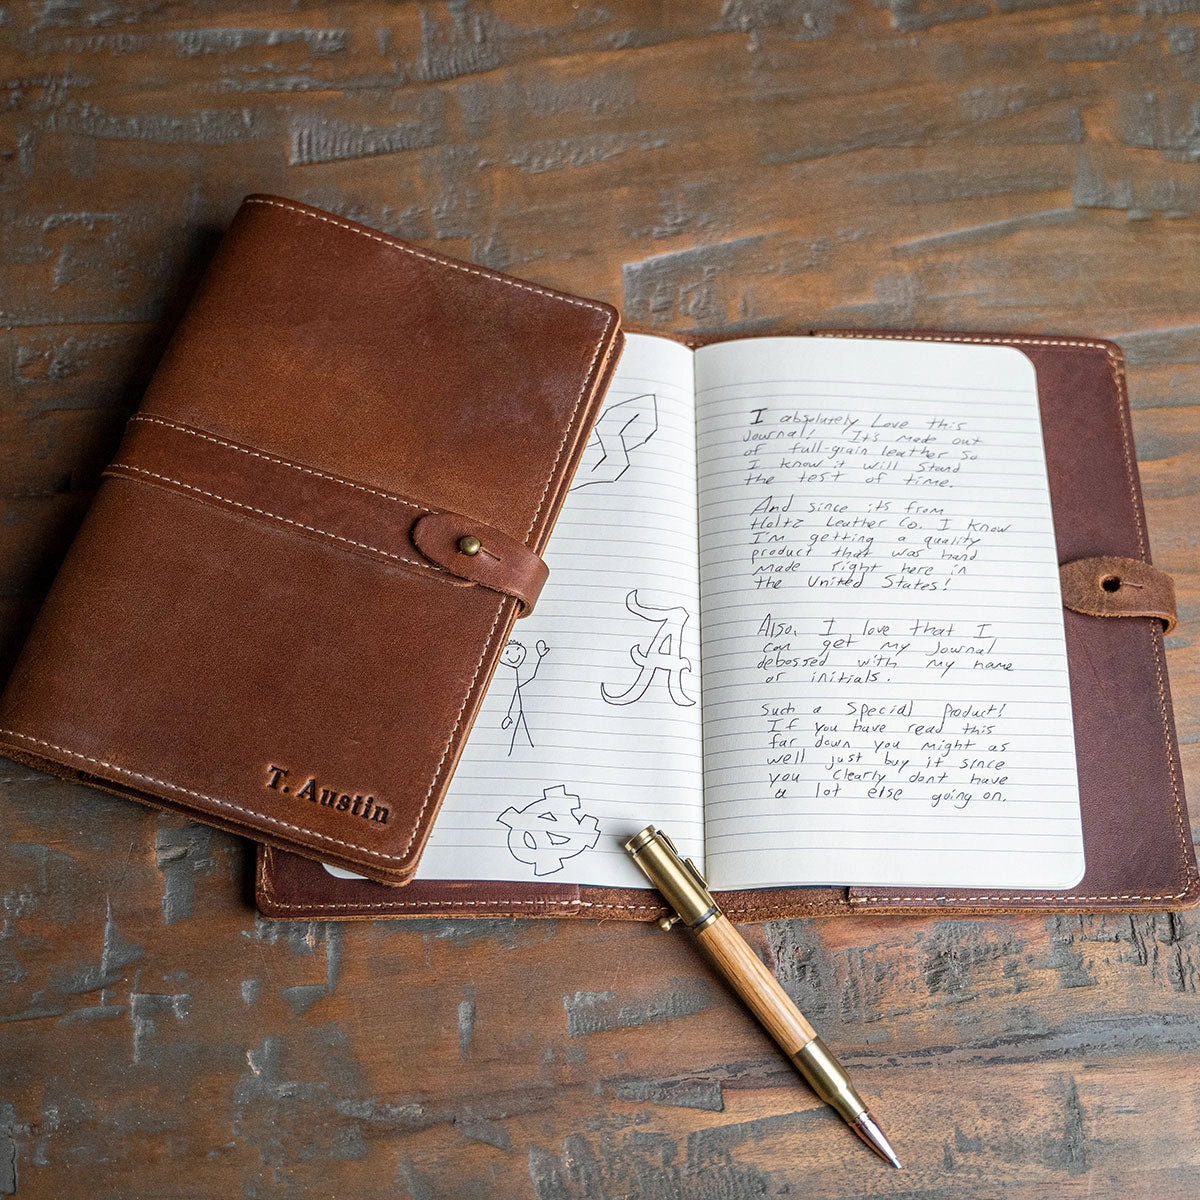 T. Austin
A
I absolutely Love this
Journal! Its made out
of full-grain leather So
I know it will Stand
the test of time.
And since its from
Holtz Leather Co. I know
I'm getting a quality
product that was hand
made right here in
the United States!
Also, I love that I
can get my Journal
debossed with my name
or initials.
Such a Special Product!
If you have read this
far down you might as
well just buy it since
you clearly dont have
a lot else going on.